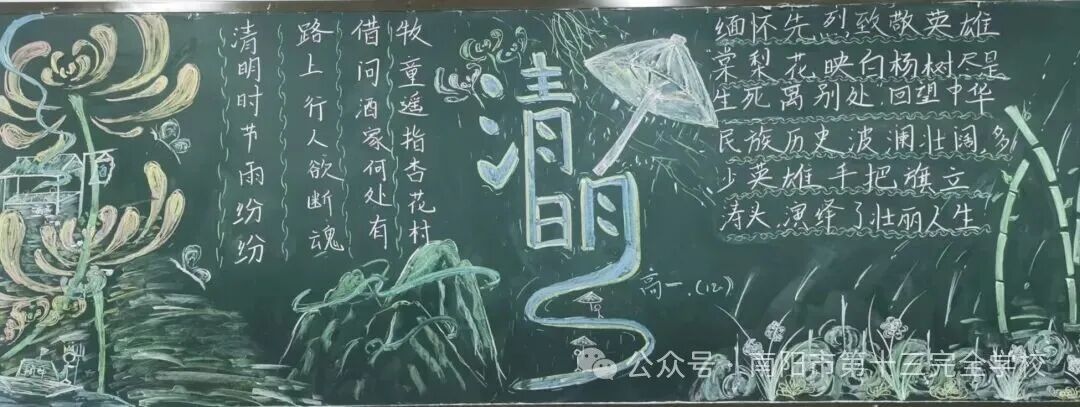 清明时节雨纷纷
路上行人欲断魂
借问酒家何处有
牧童遥指杏花村
清明
高一.(12)
缅怀先烈致敬英雄
棠梨花映白杨树尽是
生死离别处 回望中华
民族历史波澜壮阔,多
少英雄手把旗立
涛头,演绎了壮丽人生
公众号 南阳市第十三完全学校